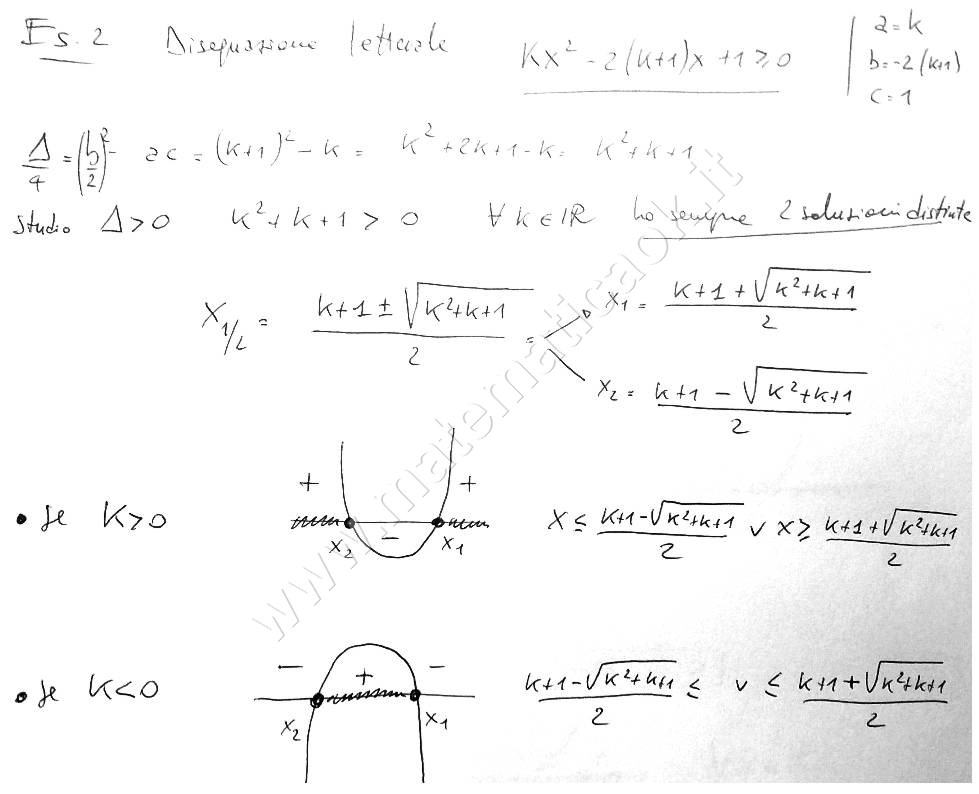 Es. 2 Disequazione letterale Kx² - 2(k+1)x + 1 ≥ 0
a = k
b = -2(k+1)
c = 1
Δ/4 = (b/2)² - ac = (k+1)² - k = k² + 2k+1 - k = k² + k + 1
Studio Δ > 0 k² + k + 1 > 0 ∀ k ∈ IR ho sempre 2 soluzioni distinte
X1/2 = (k+1 ± √(k²+k+1))/2 = x1 = (k+1 + √(k²+k+1))/2
x2 = (k+1 - √(k²+k+1))/2
+ +
• Se K>0 x2 - x1 X ≤ (k+1-√(k²+k+1))/2 v x ≥ (k+1+√(k²+k+1))/2
- + -
• Se K<0 x2 x1 (k+1-√(k²+k+1))/2 ≤ v ≤ (k+1+√(k²+k+1))/2
www.matematicaok.it